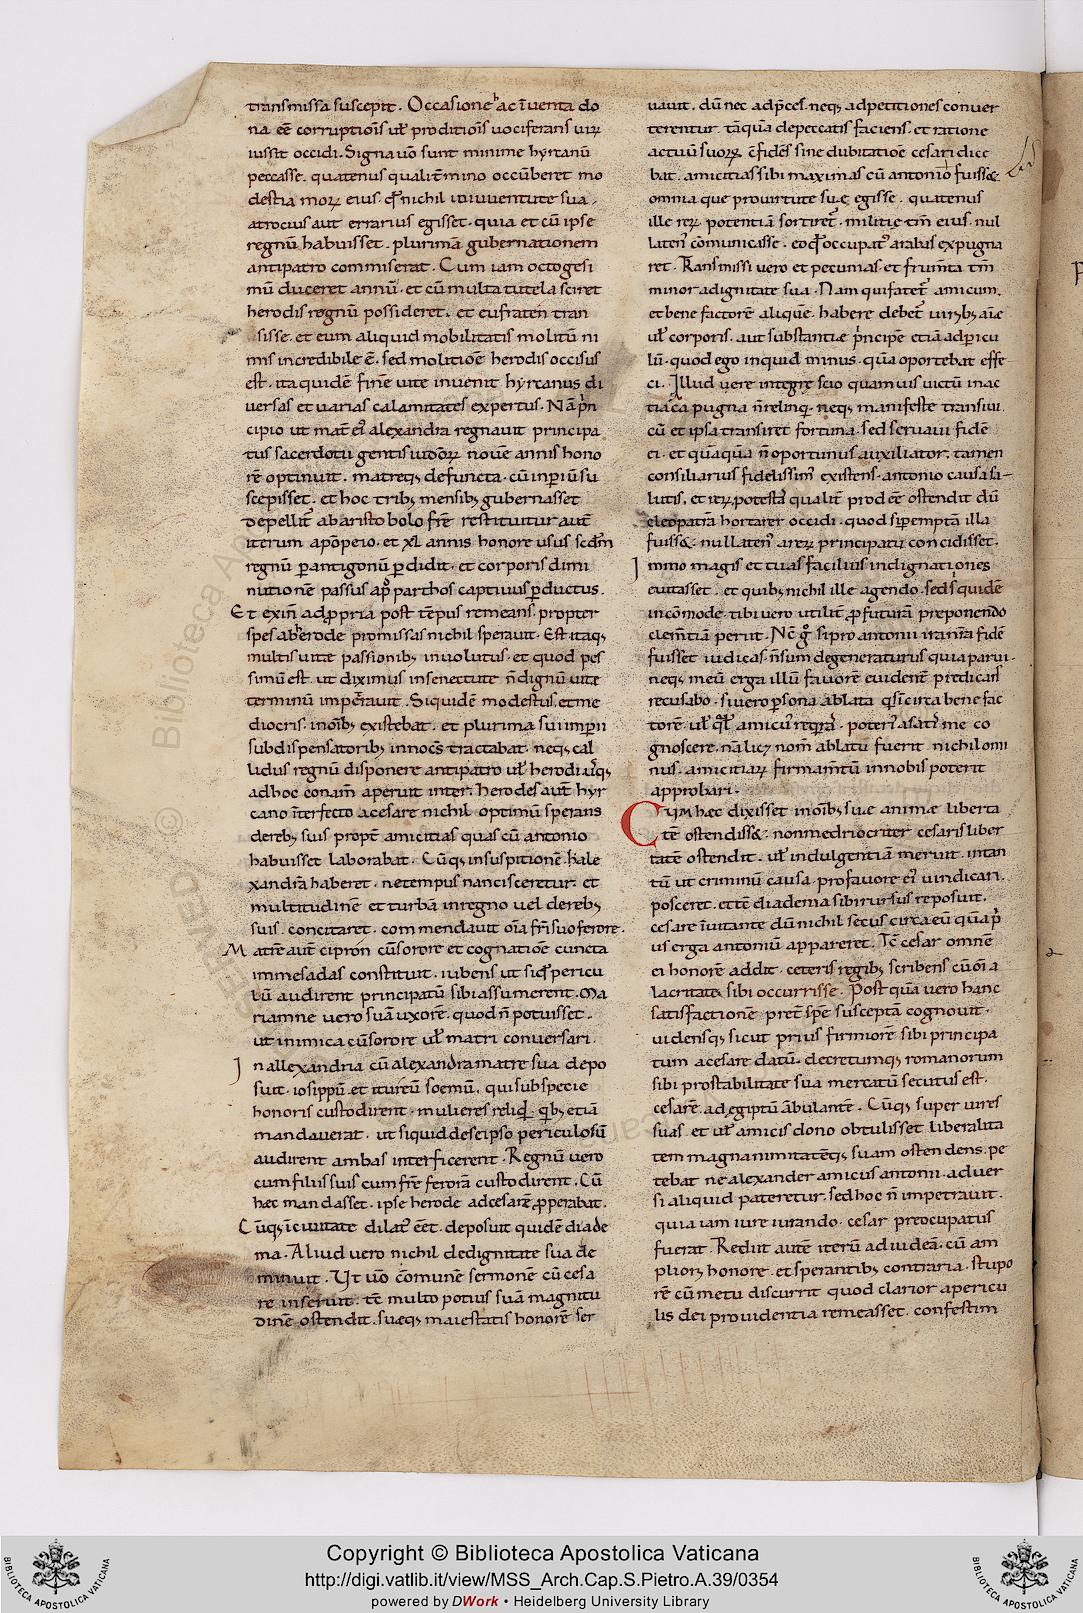 transmissa suscepit. Occasione hac īuenta do
na eē corruptiōis uł proditiōis uociferans uirꝝ
iussit occidi. Signa uo sunt minime hyrcanū
peccasse. quatenus qualit mino occūberet mo
destia morꝝ eius. qd nichil in iuuentute sua.
atrocius aut errarius egisset. quia et cū ipse
regnū habuisset. plurimā gubernationem
antipatro commiserat. Cum iam octogesi
mū duceret annū. et cū multa tutela sciret
herodis regnū possideret. et eufraten tran
sisse. et eum aliquid mobilitatis molitū ni
mis incredibile ē. sed molitiōe herodis occisus
est. ita quidē finē uite inuenit hyrcanus di
uersas et uarias calamitates expertus. Nā prin
cipio ut mat ei alexandra regnauit principa
tus sacerdotii gentis iudeorꝝ nouē annis hono
rē optinuit. matreqꝫ defuncta. cū inperiū su
scepisset. et hoc tribꝫ mensibꝫ gubernasset
depellit ab aristobolo frē restituitur autē
iterum apōpeio. et xl annis honore usus scdm
regnū p antigonū pdidit. et corporis dimi
nutionē passus apd parthos captiuus pductus.
Et exin ad ppria post tēpus remeans. propter
spes ab herode promissas nichil sperauit. Est itaqꝫ
multis uitae passionibꝫ inuolutus. et quod pes
simū est. ut diximus in senectute n dignū uite
terminū imperauit. Siquidē modestus. et me
diocris. in oībꝫ existebat. et plurima sui imperii
subdispensatoribꝫ innocs tractabat. neqꝫ cal
lidus regnū disponere antipatro uł herodi
adhoc conam aperuit inter. herodes autē hyr
cano īterfecto a cesare nichil optimū sperans
derebꝫ suis propt amicitias quas cū antonio
habuisset laborabat. Cūqꝫ in suspitionē h ale
xandrā haberet. ne tempus nancisceretur. et
multitudinē et turbā in regno uel derebꝫ
suis. concitaret. commendauit oīa fri suo ferore.
Matrē autē cipron cū sorore et cognatiōe cuncta
immesadas constituit. iubens ut siqd pericu
lū audirent principatū sibi assumerent. Ma
riamne uero suā uxorē. quod n potuisset.
ut inimica cū sorore uł matri conuersari.
In allexandria cū alexandra matre sua depo
suit. iosippū. et itureū soemū. qui sub specie
honoris custodirent. mulieres reliqd. qbꝫ etiā
mandauerat. ut siquid de se ipso periculosū
audirent ambas interficerent. Regnū uero
cum filiis suis cum frē ferorā custodirent. Cū
hec mandasset. ipse herode ad cesarē pperabat.
Cūqꝫ ī ciuitate dilat eēt. deposuit quidē diade
ma. Aliud uero nichil de dignitate sua de
minuit. Ut uo cōmunē sermonē cū cesa
re inseruit. tē multo potius suā magnitu
dinē ostendit. sueqꝫ maiestatis honorē ser
uauit. dū nec ad pces. neqꝫ ad petitiones conuer
terentur. tāquā de peccatis faciens. et ratione
actuū suorꝝ cfides sine dubitatiōe cesari dice
bat. amicitias sibi maximas cū antonio fuisse
omnia que pro uirtute sue egisse. quatenus
ille rerꝝ potentiā sortiret. militie tm eius. nul
laten cōmunicasse. eo qd occupat arabas expugna
ret. Transmissi uero et pecunias. et frumta tm
minor a dignitate sua. Nam qui fatet amicum.
et bene factorē aliquē. habere debet uiribꝫ aīe
uł corporis. aut substantie principe etiā ad pericu
lū. quod ego inquid minus. quā oportebat effe
ci. Illud uere integre scio quamuis uictū in ac
tiaca pugna n relinq. neqꝫ manifeste transiui.
cū et ipsa transiret fortuna. sed seruaui fidē
ei. et quāquā n oportunus auxiliator. tamen
consiliarius fidelissim existens. antonio causa sa-
lutis. et iterꝝ potestā qualit prodeē ostendit dū
cleopatrā hortarer occidi. quod si perempta illa
fuisset. nullaten arerꝝ principatu concidisset.
Immo magis et tuas facilius indignationes
euitasset. et quibꝫ nichil ille agendo. sed quidē
incōmode. tibi uero utilit pfuturā preponendo
clemtiā periit. Nc g si pro antonii ira nram fidē
fuisset iudicas. n sum degeneraturus quia parui.
neqꝫ meū erga illū fauorē euidenē predicari
recusabo. si uero psona ablata qsi circa bene fac
torē uł qlis amicus requirā. poteris asatis me co
gnoscere. nā licꝫ nom ablatū fuerit nichilomi
nus. amicitiarꝝ firmamtū in nobis poterit
approbari.
Cum haec dixisset in oībꝫ sue animae liberta
tē ostendisset. non mediocriter cesaris liber
tatē ostendit. uł indulgentiā meruit. in tan
tū ut criminū causa. pro fauore ei uindicari.
posceret. et tē diadema sibi rursus reposuit.
cesare īuitante dū nichil secus circa eū quā pri
us erga antoniū appareret. Tē cesar omnē
ei honorē addit. ceteris regibꝫ scribens cū oī a
lacritate sibi occurrisse. Post quā uero hanc
satisfactionē pret spē susceptā cognouit.
uidensqꝫ sicut prius firmiorē sibi principa
tum a cesare datū. decretumqꝫ romanorum
sibi pro stabilitate sua mercatū secutus est.
cesarē. ad egiptū ābulantē. Cūqꝫ super uires
suas. et uł amicis dono obtulisset liberalita
tem magnanimitatēqꝫ suam ostendens. pe
tebat ne alexander amicus antonii. aduer
si aliquid pateretur. sed hoc n impetrauit.
quia iam iure iurando. cesar preocupatus
fuerat. Rediit autē iterū ad iudeā. cū am
pliori honore. et sperantibꝫ contraria. stupo
rē cū metu discurrit quod clarior a pericu
lis dei prouidentia remeasset. confestim
Copyright © Biblioteca Apostolica Vaticana
http://digi.vatlib.it/view/MSS_Arch.Cap.S.Pietro.A.39/0354
powered by DWork • Heidelberg University Library